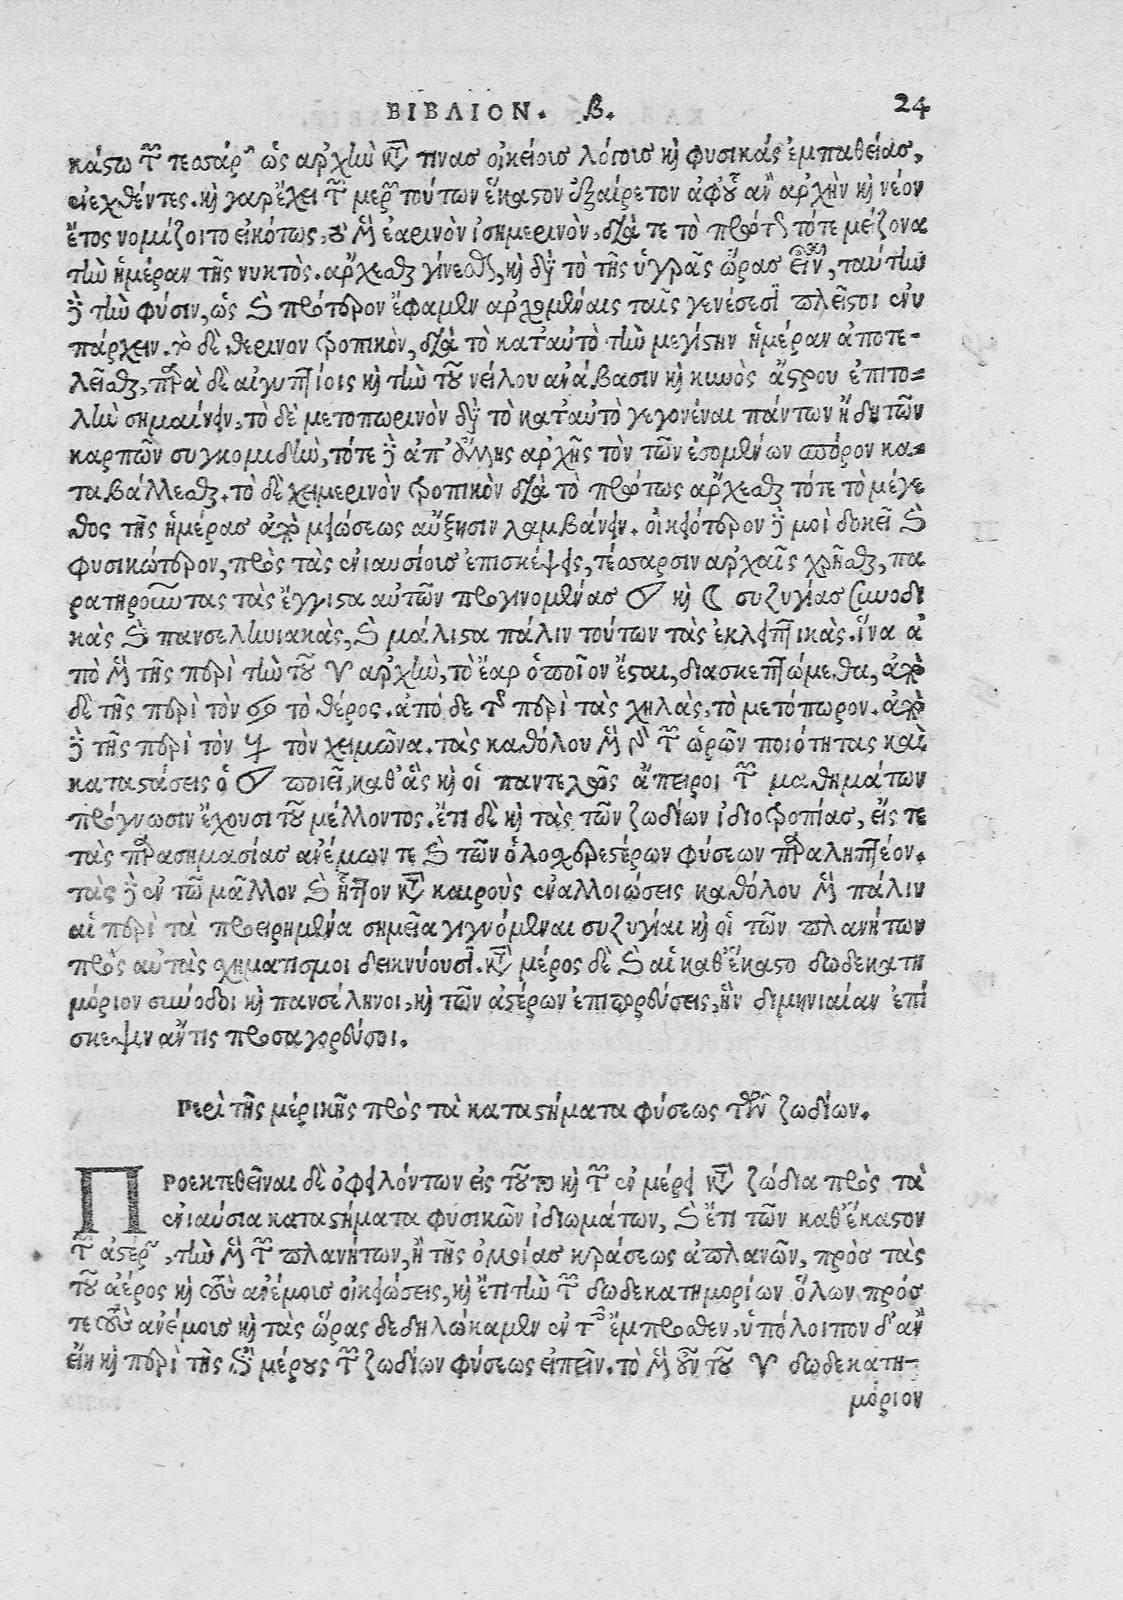 ΒΙΒΛΙΟΝ. β. 24
κάστω τῶν τεσσάρων ὡς ἀρχὴν κατὰ τινας οἰκείοις λόγοις καὶ φυσικάς ἐμπαθείας,
ἐνεχθέντες. καὶ γαρ ἔχει τῶν μερῶν τούτων ἕκαστον ἐξαίρετον ἀφ' οὗ ἂν ἀρχὴν καὶ νέον
ἔτος νομίζοιτο εἰκότως, τὸ μὲν ἐαρινὸν ἰσημερινὸν, διά τε τὸ πρώτως τότε μείζονα
τὴν ἡμέραν τῆς νυκτὸς. ἄρχεσθαι γίνεσθαι, καὶ διὰ τὸ τῆς ὑγρᾶς ὥρας εἶναι, ταύτην
δὲ τὴν φύσιν, ὡς καὶ πρότερον ἔφαμεν ἀρχομέναις ταῖς γενέσεσι πλεῖστοι ἐνυ
πάρχειν. τὸ δὲ θερινον τροπικὸν, διὰ τὸ κατ' αὐτὸ τὴν μεγίστην ἡμέραν ἀποτε-
λεῖσθαι, παρὰ δὲ αἰγυπτίοις καὶ τὴν τοῦ νείλου ἀνάβασιν καὶ κυνὸς ἄστρου ἐπιτο-
λὴν σημαίνειν, τὸ δὲ μετοπωρινὸν διὰ τὸ κατ' αὐτὸ γεγονέναι πάντων ἤδη τῶν
καρπῶν συγκομιδὴν, τότε δὲ ἀπ' ἄλλης ἀρχῆς τὸν τῶν ἐσομένων σπόρον κα-
ταβάλλεσθαι. τὸ δὲ χειμερινὸν τροπικὸν διὰ τὸ πρώτως ἄρχεσθαι τότε τὸ μέγε
θος τῆς ἡμέρας ἀπὸ μειώσεως αὔξησιν λαμβάνειν. οἰκειότερον δὲ μοὶ δοκεῖ καὶ
φυσικώτερον, πρὸς τὰς ἐνιαυσίους ἐπισκέψεις, τέσσαρσιν ἀρχαῖς χρῆσθαι, πα
ρατηροῦντας τὰς ἔγγιστα αὐτῶν προγινομένας ☌ καὶ ☾ συζυγίας συνοδι
κὰς καὶ πανσεληνιακὰς, καὶ μάλιστα πάλιν τούτων τὰς ἐκλειπτικὰς. ἵνα ἀ
πὸ μὲν τῆς περὶ τὴν τοῦ ♈ ἀρχὴν, τὸ ἔαρ ὁποῖον ἔσται, διασκεπτώμεθα, ἀπὸ
δὲ τῆς περὶ τὸν ♋ τὸ θέρος. ἀπό δε τῆς περὶ τὰς χηλὰς, τὸ μετόπωρον. ἀπὸ
δὲ τῆς περὶ τὸν ♑ τὸν χειμῶνα. τὰς καθόλου μὲν γὰρ τῶν ὡρῶν ποιότητας καὶ
καταστάσεις ὁ ☌ ποιεῖ, καθ' ἃς καὶ οἱ παντελῶς ἄπειροι τῶν μαθημάτων
πρόγνωσιν ἔχουσι τοῦ μέλλοντος. ἔτι δὲ καὶ τὰς τῶν ζωδίων ἰδιοτροπίας, εἴς τε
τὰς παρασημασίας ἀνέμων τε καὶ τῶν ὁλοσχερεστέρων φύσεων παραληπτέον.
τὰς δὲ ἐν τῶ μᾶλλον καὶ ἧττον κατὰ καιροὺς ἐναλλοιώσεις καθόλου μὲν πάλιν
αἱ περὶ τὰ προειρημένα σημεῖα γιγνόμεναι συζυγίαι καὶ οἱ τῶν πλανήτων
πρὸς αὐτὰς σχηματισμοι δεικνύουσι. κατὰ μέρος δὲ καὶ αἱ καθ' ἕκαστο δωδεκατη
μόριον σύνοδοι καὶ πανσέληνοι, καὶ τῶν ἀστέρων ἐπιπορεύσεις, ἣν διμηνιαίαν ἐπί
σκεψιν ἄν τις προσαγορεύσοι.
Περὶ τῆς μέρικῆς πρὸς τὰ καταστήματα φύσεως τῶν ζωδίων.
ΠΡοεκτεθεῖναι δὲ ὀφειλόντων εἰς τοῦτο καὶ τῶν ἐν μέρει κατὰ ζώδια πρὸς τὰ
ἐνιαύσια καταστήματα φυσικῶν ἰδιωμάτων, καὶ ἔτι τῶν καθ' ἕκαστον
τῶν ἀστέρων, τὴν μὲν τῶν πλανήτων, ἢ τῆς ὁμοίας κράσεως ἀπλανῶν, πρὸς τὰς
τοῦ ἀέρος καὶ τοὺς ἀνέμους οἰκειώσεις, καὶ ἔτι τὴν τῶν δωδεκατημορίων ὅλων πρός
τε τοὺς ἀνέμους καὶ τὰς ὥρας δεδηλώκαμεν ἐν τοῖς ἔμπροσθεν, ὑπόλοιπον δ' ἂν
εἴη καὶ περὶ τῆς ἐπὶ μέρους τῶν ζωδίων φύσεως εἰπεῖν. τὸ μὲν οὖν τοῦ ♈ δωδεκατη-
μόριον